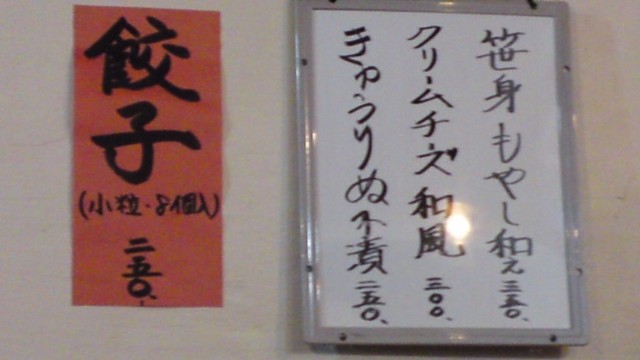 笹身もやし和え 三五〇.
クリームチーズ和風 三〇〇.
きゅうりぬか漬 二五〇.
餃子
(小粒・8個入)
二五〇.